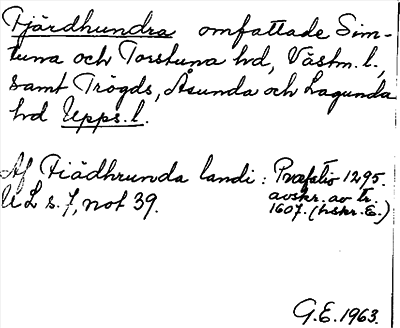 Fjärdhundra omfattade Sim-
tuna och Torstuna hd, Västm. l.,
samt Trögds, Åsunda och Lagunda
hd Upps. l.
Af Fiädhrunda landi: Præfatio 1295.
avskr. av tr.
UL s. 7, not 39. 1607. (hskr. E.)
G.E. 1963.